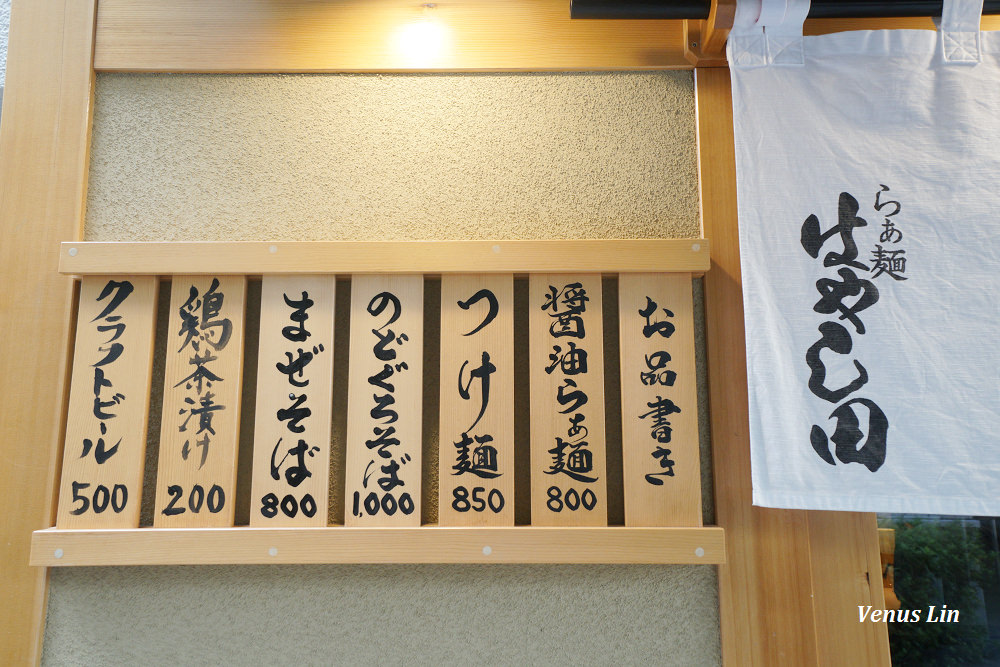 らぁ麺
はやし田
お品書き
醤油らぁ麺
800
つけ麺
850
のどぐろそば
1,000
まぜそば
800
鶏茶漬け
200
クラフトビール
500
Venus Lin